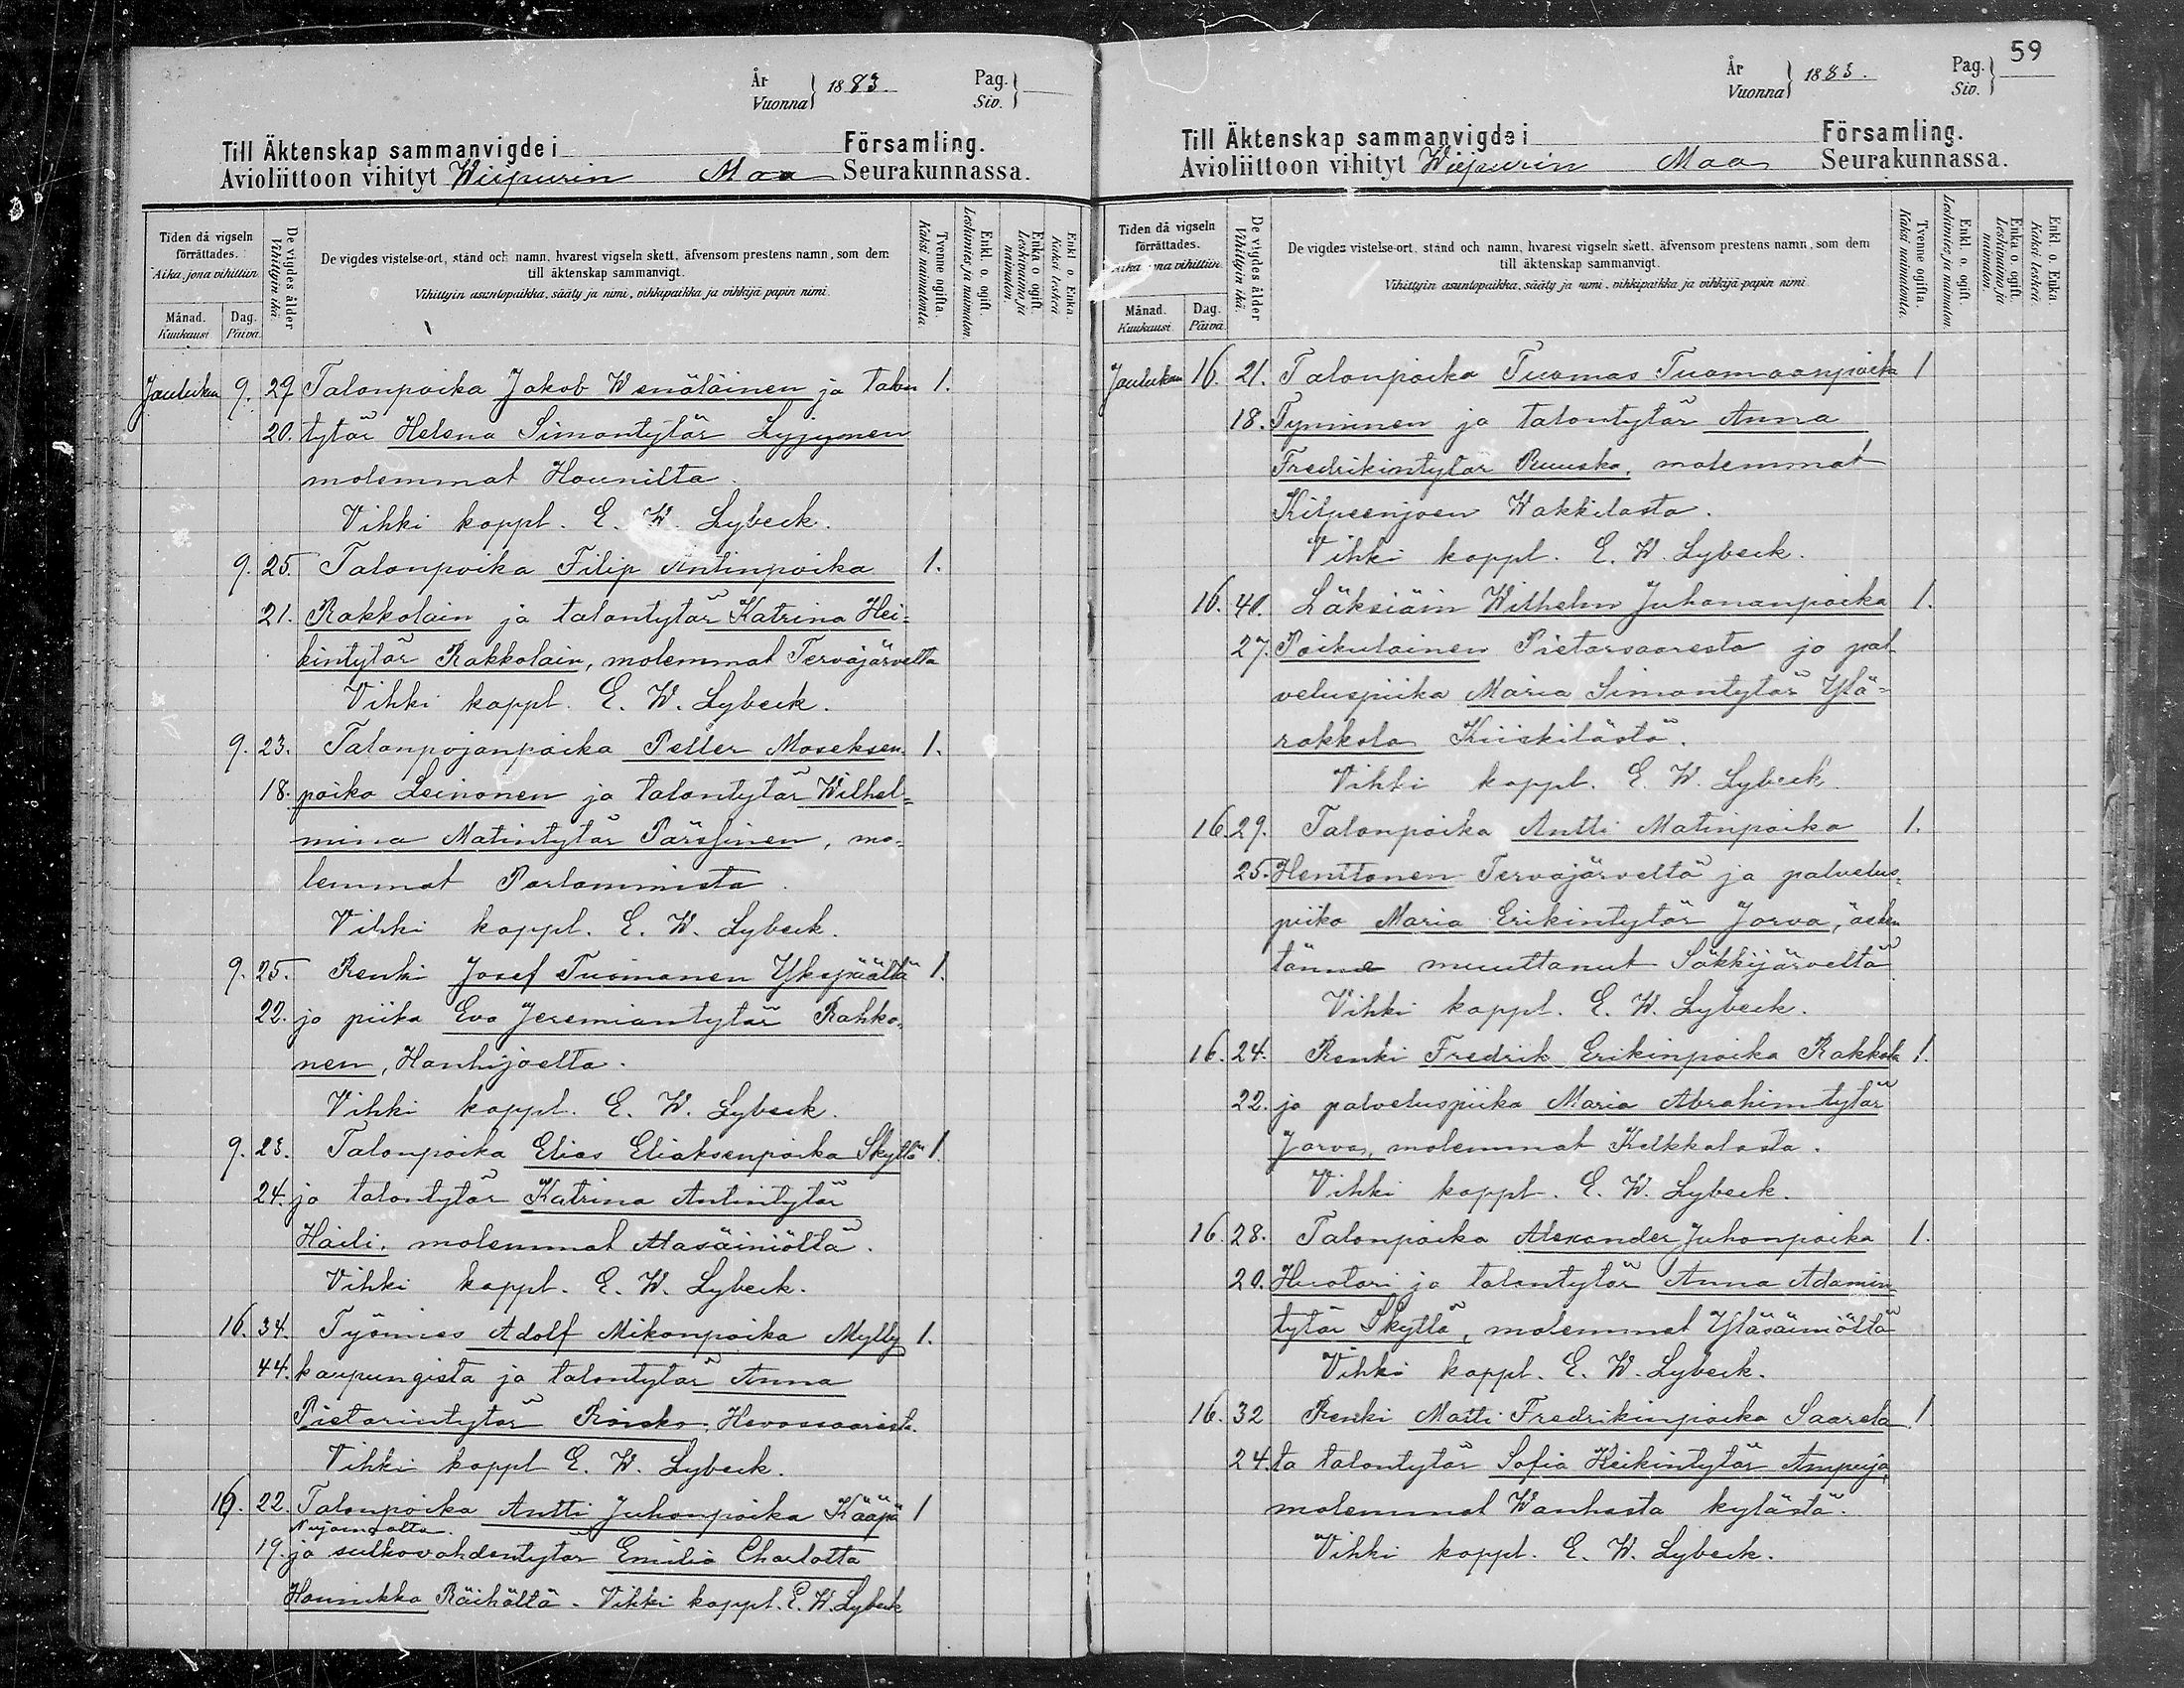 År
Vuonna } 1883.
Pag.
Siv. }
Till Äktenskap sammanvigde i Församling.
Avioliittoon vihityt Wiipurin Maa Seurakunnassa.
Tiden då vigseln förrättades.
Aika, jona vihittiin.
Månad. Kuukausi
Dag. Päivä.
De vigdes ålder
Vihittyin ikä.
De vigdes vistelse-ort, stånd och namn, hvarest vigseln skett, äfvensom prestens namn, som dem
till äktenskap sammanvigt.
Vihittyin asuntopaikka, sääty ja nimi, vihkipaikka ja vihkijä papin nimi.
Tvenne ogifta.
Kaksi naimatonta.
Enkl. o. ogift.
Leskimies ja naimaton.
Enka o. ogift.
Leskivaimo ja naimaton.
Enkl. o. Enka.
Kaksi leskeä.
Joulukuu 9. 29 Talonpoika Jakob Wenäläinen ja talon 1.
20. tytär Helena Simontytär Lyijynen
molemmat Hounilta.
Vihki koppl. E. W. Lybeck.
9. 25. Talonpoika Filip Antinpoika 1.
21. Rakkolain ja talontytär Katrina Hei=
kintytär Rakkolain, molemmat Tervajärveltä
Vihki koppl. E. W. Lybeck.
9. 23. Talonpojanpoika Petter Moseksen 1.
18. poika Leinonen ja talontytär Wilhel=
mina Matintytär Pärssinen, mo=
lemmat Portommista.
Vihki koppl. E. W. Lybeck.
9. 25. Renki Josef Tuomanen Ykspäältä 1.
22. ja piika Eva Jeremiantytär Rahko=
nen, Hanhijoelta.
Vihki koppl. E. W. Lybeck.
9. 23. Talonpoika Elias Eliaksenpoika Skyttä 1.
24. ja talontytär Katrina Antintytär
Haili, molemmat Alasäiniöltä.
Vihki koppl. E. W. Lybeck.
16. 34. Työmies Adolf Mikonpoika Mylly 1.
44. kaupungista ja talontytär Anna
Pietarintytär Roisko, Hevossaaresta.
Vihki koppl E. W. Lybeck.
22. Talonpoika Antti Juhonpoika Kääpä 1
Nuijamaalta.
19. ja sulkovahdentytär Emilia Charlotta
Hounikka Räihältä. Vihki koppl. E. W. Lybeck
59
År
Vuonna } 1883.
Pag.
Siv. }
Till Äktenskap sammanvigde i Församling.
Avioliittoon vihityt Wiipurin Maa Seurakunnassa.
Tiden då vigseln förrättades.
Aika, jona vihittiin.
Månad. Kuukausi
Dag. Päivä.
De vigdes ålder
Vihittyin ikä.
De vigdes vistelse-ort, stånd och namn, hvarest vigseln skett, äfvensom prestens namn, som dem
till äktenskap sammanvigt.
Vihittyin asuntopaikka, sääty ja nimi, vihkipaikka ja vihkijä papin nimi.
Tvenne ogifta.
Kaksi naimatonta.
Enkl. o. ogift.
Leskimies ja naimaton.
Enka o. ogift.
Leskivaimo ja naimaton.
Enkl. o. Enka.
Kaksi leskeä.
Joulukuu 16. 21. Talonpoika Tuomas Tuomaanpoika 1
18. Tynninen ja talontytär Anna
Fredrikintytär Ruuska, molemmat
Kilpeenjoen Wakkilasta.
Vihki koppl. E. W. Lybeck.
16. 40. Läksiäin Wilhelm Juhananpoika 1.
27. Poikulainen Pietarsaaresta ja pal
veluspiika Maria Simontytär Ylä=
rakkola Kiiskilästä.
Vihki koppl. E. W. Lybeck.
16. 29. Talonpoika Antti Matinpoika 1.
25. Henttonen Tervajärveltä ja palvelus=
piika Maria Erikintytär Jorva, äsken
tänne muuttanut Säkkijärveltä
Vihki koppl. E. W. Lybeck.
16. 24. Renki Fredrik Erikinpoika Rakkola 1.
22. ja palveluspiika Maria Abrahimtytär
Jorva, molemmat Kelkkalasta.
Vihki koppl. E. W. Lybeck.
16. 28. Talonpoika Alexander Juhonpoika 1.
20. Huotari ja talontytär Anna Adamin
tytär Skyttä, molemmat Yläsäiniöltä
Vihki koppl. E. W. Lybeck.
16. 32 Renki Matti Fredrikinpoika Saarela 1
24. ta talontytär Sofia Heikintytär Ampuja,
molemmat Wanhasta kylästä.
Vihki koppl. E. W. Lybeck.